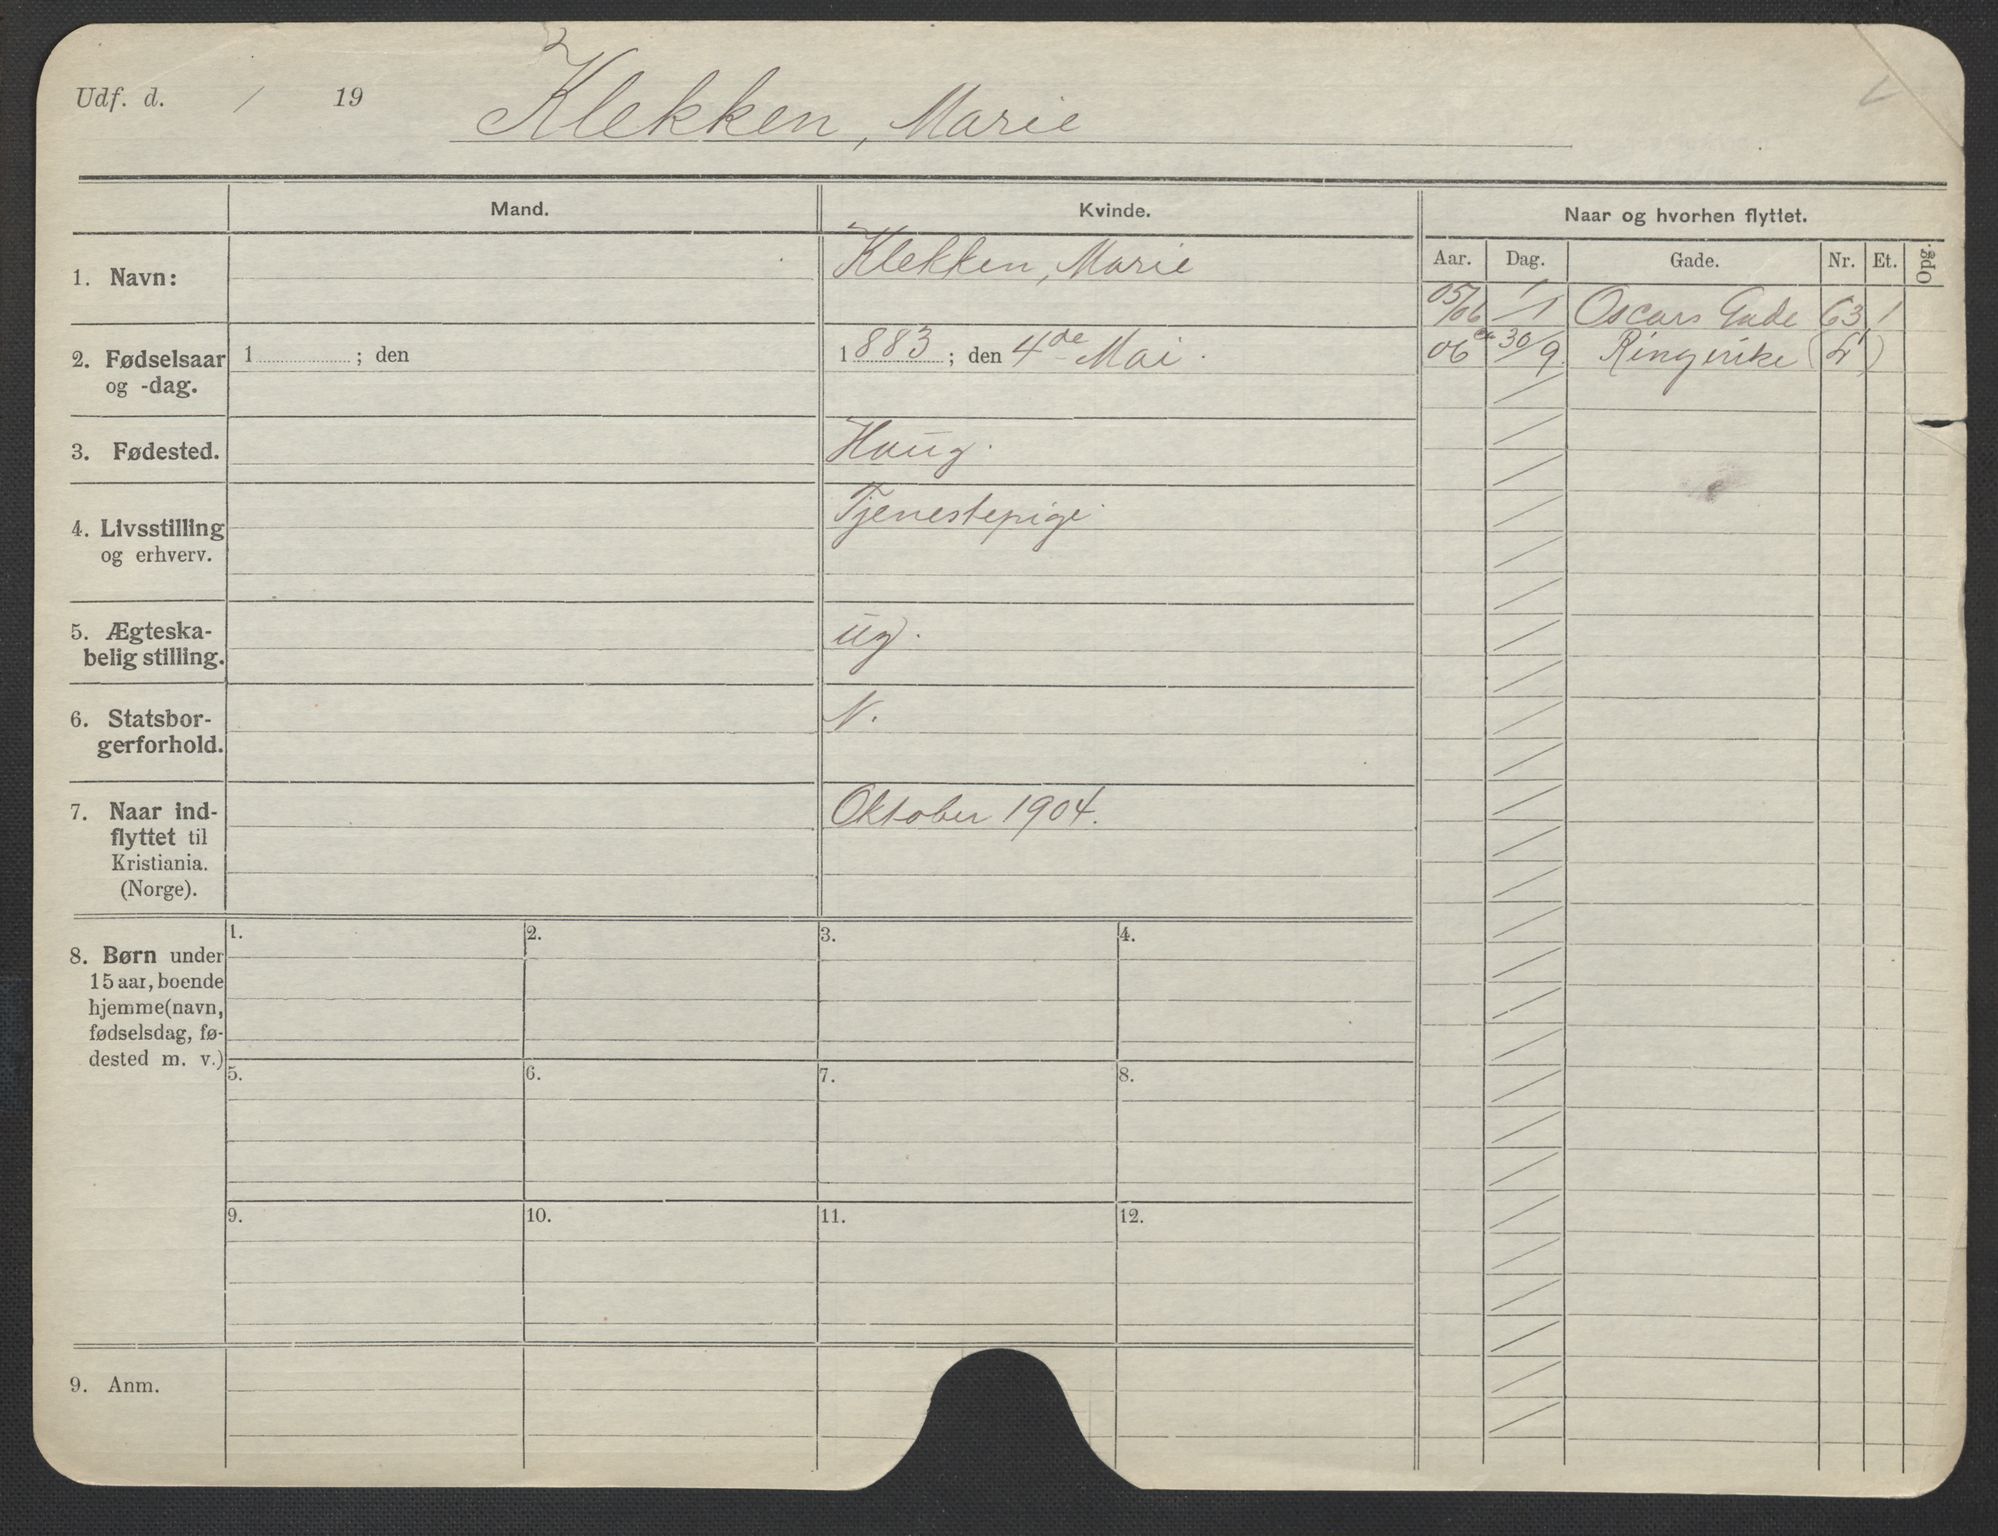 Udf. d. / 19 Klekken, Marie
Mand. Kvinde. Naar og hvorhen flyttet.
Aar. Dag. Gade. Nr. Et. Opg.
1. Navn: Klekken, Marie
05/06 1/1 Oscars Gade 63 1
2. Fødselsaar 1 ; den 1883; den 4de Mai.
og -dag.
06 30/9 Ringerike
3. Fødested. Haug.
4. Livsstilling Tjenestepige
og erhverv.
5. Ægteska- ug.
belig stilling.
6. Statsbor- N.
gerforhold.
7. Naar ind- Oktober 1904.
flyttet til
Kristiania.
(Norge).
8. Børn under
15 aar, boende
hjemme (navn,
fødselsdag, fø-
dested m. v.)
1. 2. 3. 4.
5. 6. 7. 8.
9. 10. 11. 12.
9. Anm.